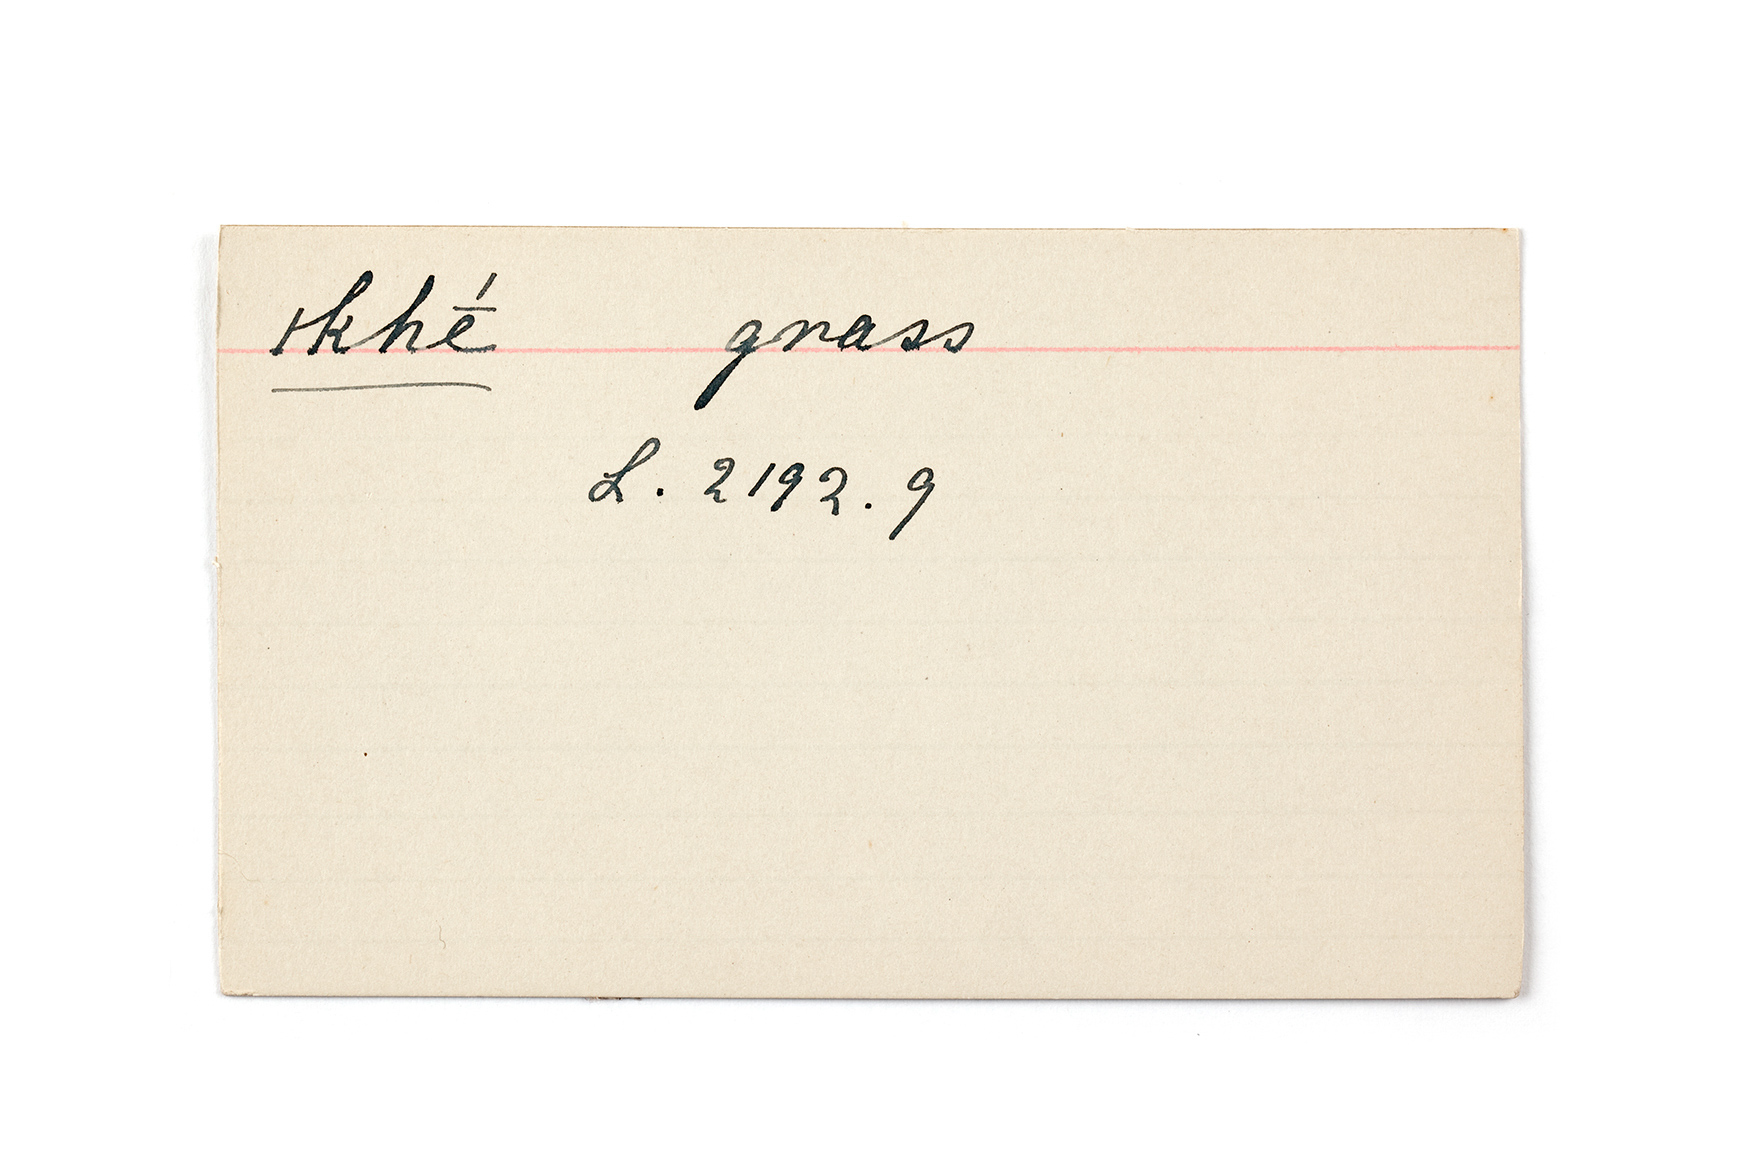 ǀkhḗ grass
L. 2192. 9